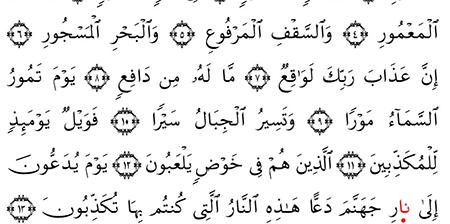 ٱلْمَعْمُورِ ﴿٤﴾ وَٱلسَّقْفِ ٱلْمَرْفُوعِ ﴿٥﴾ وَٱلْبَحْرِ ٱلْمَسْجُورِ ﴿٦﴾
إِنَّ عَذَابَ رَبِّكَ لَوَٰقِعٌ ﴿٧﴾ مَّا لَهُۥ مِن دَافِعٍ ﴿٨﴾ يَوْمَ تَمُورُ
ٱلسَّمَآءُ مَوْرًا ﴿٩﴾ وَتَسِيرُ ٱلْجِبَالُ سَيْرًا ﴿١٠﴾ فَوَيْلٌ يَوْمَئِذٍ
لِّلْمُكَذِّبِينَ ﴿١١﴾ ٱلَّذِينَ هُمْ فِى خَوْضٍ يَلْعَبُونَ ﴿١٢﴾ يَوْمَ يُدَعُّونَ
إِلَىٰ نارِ جَهَنَّمَ دَعًّا هَـٰذِهِ ٱلنَّارُ ٱلَّتِى كُنتُم بِهَا تُكَذِّبُونَ ﴿١٣﴾